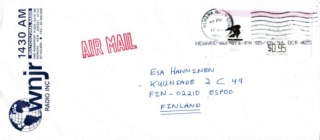 1430 AM
wnjr
RADIO INC
AIR MAIL
$0.95
ESA HANNINEN
KUUNSADE 2 C 49
FIN-02210 ESPOO
FINLAND